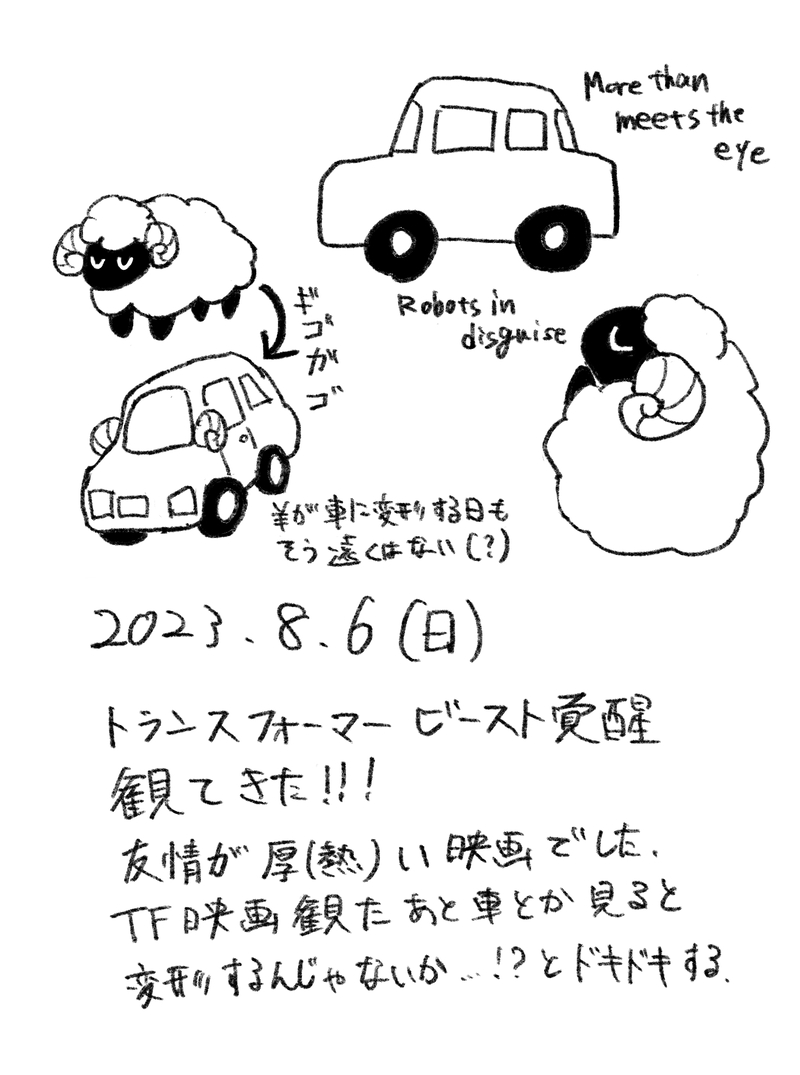 More than
meets the
eye
Robots in
disguise
ギゴガゴ
羊が車に変形する日も
そう遠くはない(?)
2023.8.6(日)
トランスフォーマー ビースト覚醒
観てきた!!!
友情が厚(熱)い映画でした.
TF映画観たあと車とか見ると
変形するんじゃないか…!?とドキドキする.